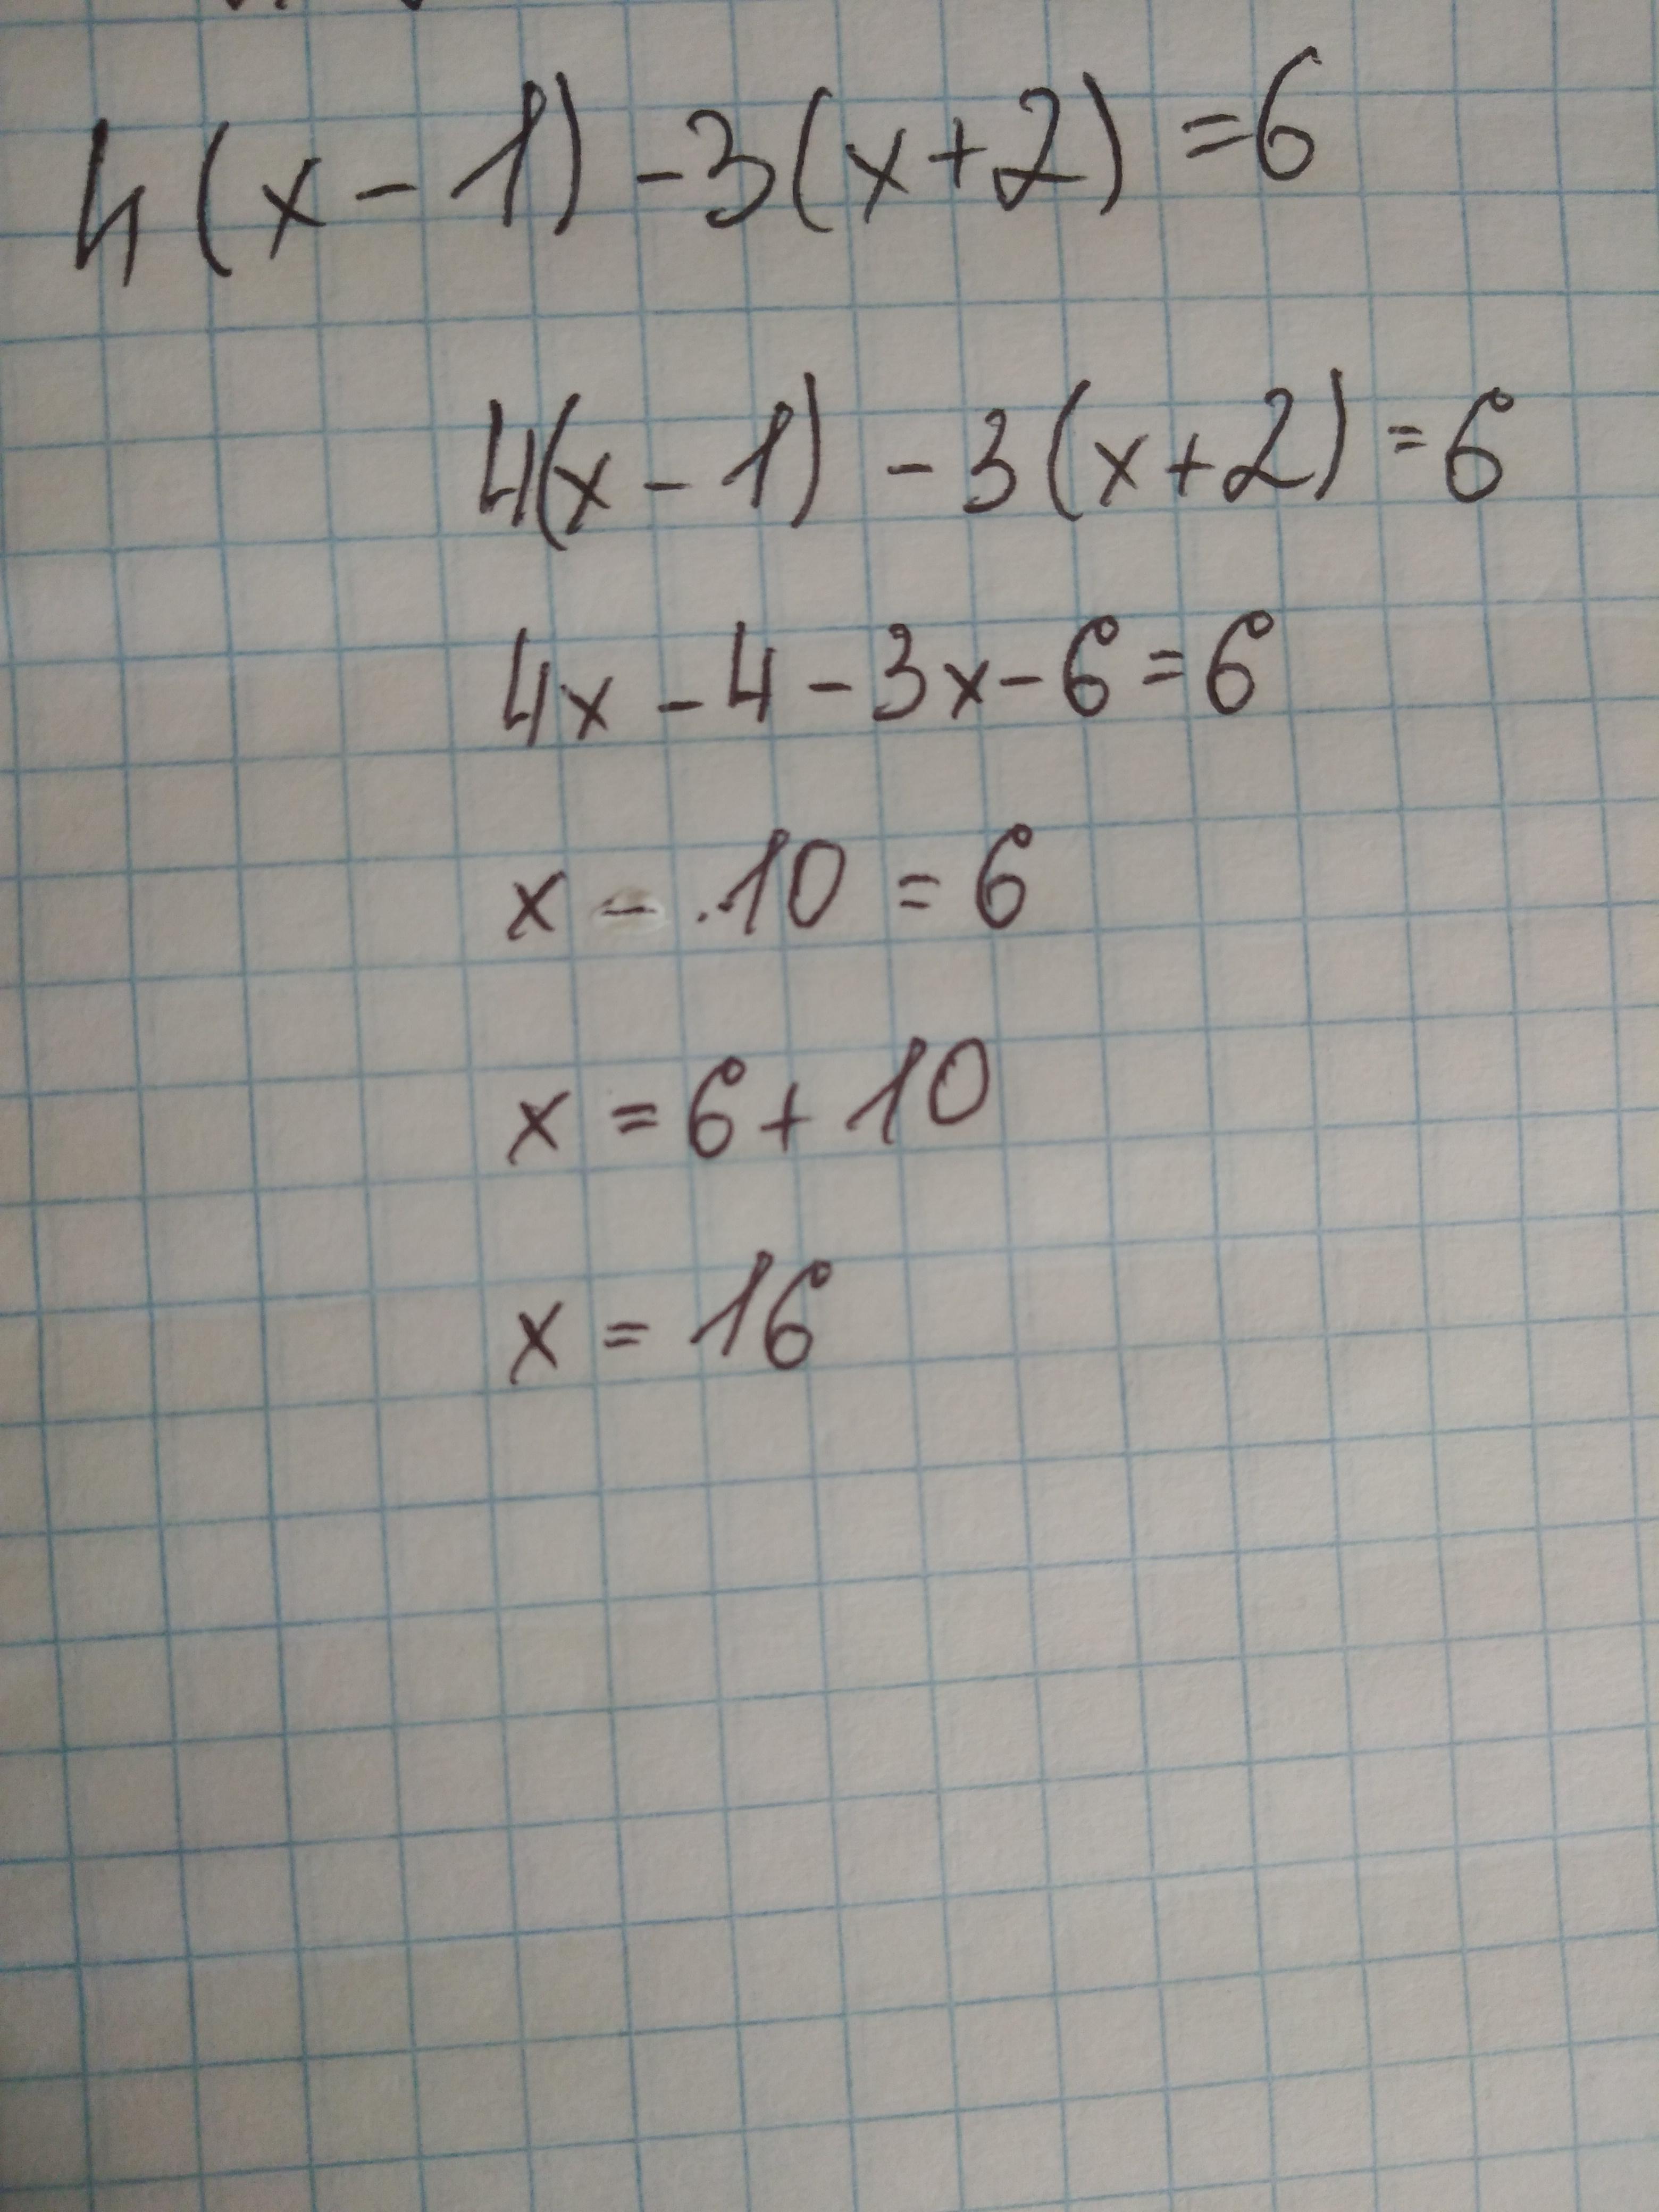 4(x-1)-3(x+2)=6
4(x-1)-3(x+2)=6
4x-4-3x-6=6
x-10=6
x=6+10
x=16